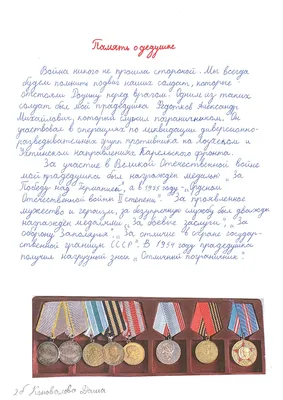 Память о дедушке
Война никого не прошла стороной. Мы всегда
будем помнить подвиг наших солдат, которые
отстояли Родину перед врагом. Одним из таких
солдат был мой прадедушка Федотков Александр
Михайлович, который служил пограничником. Он
участвовал в операциях по ликвидации диверсионно-
разведывательных групп противника на Лоухском и
Ухтинском направлениях Карельского фронта.
За участие в Великой Отечественной войне
мой прадедушка был награжден медалью „За
Победу над Германией", а в 1985 году - „Орденом
Отечественной войны II степени". За проявленное
мужество и героизм, за безупречную службу был дважды
награжден медалями „За боевые заслуги", „За
оборону Заполярья", „За отличие в охране государ-
ственной границы СССР". В 1954 году прадедушка
получил нагрудной знак „Отличный пограничник".
2б Коновалова Даша